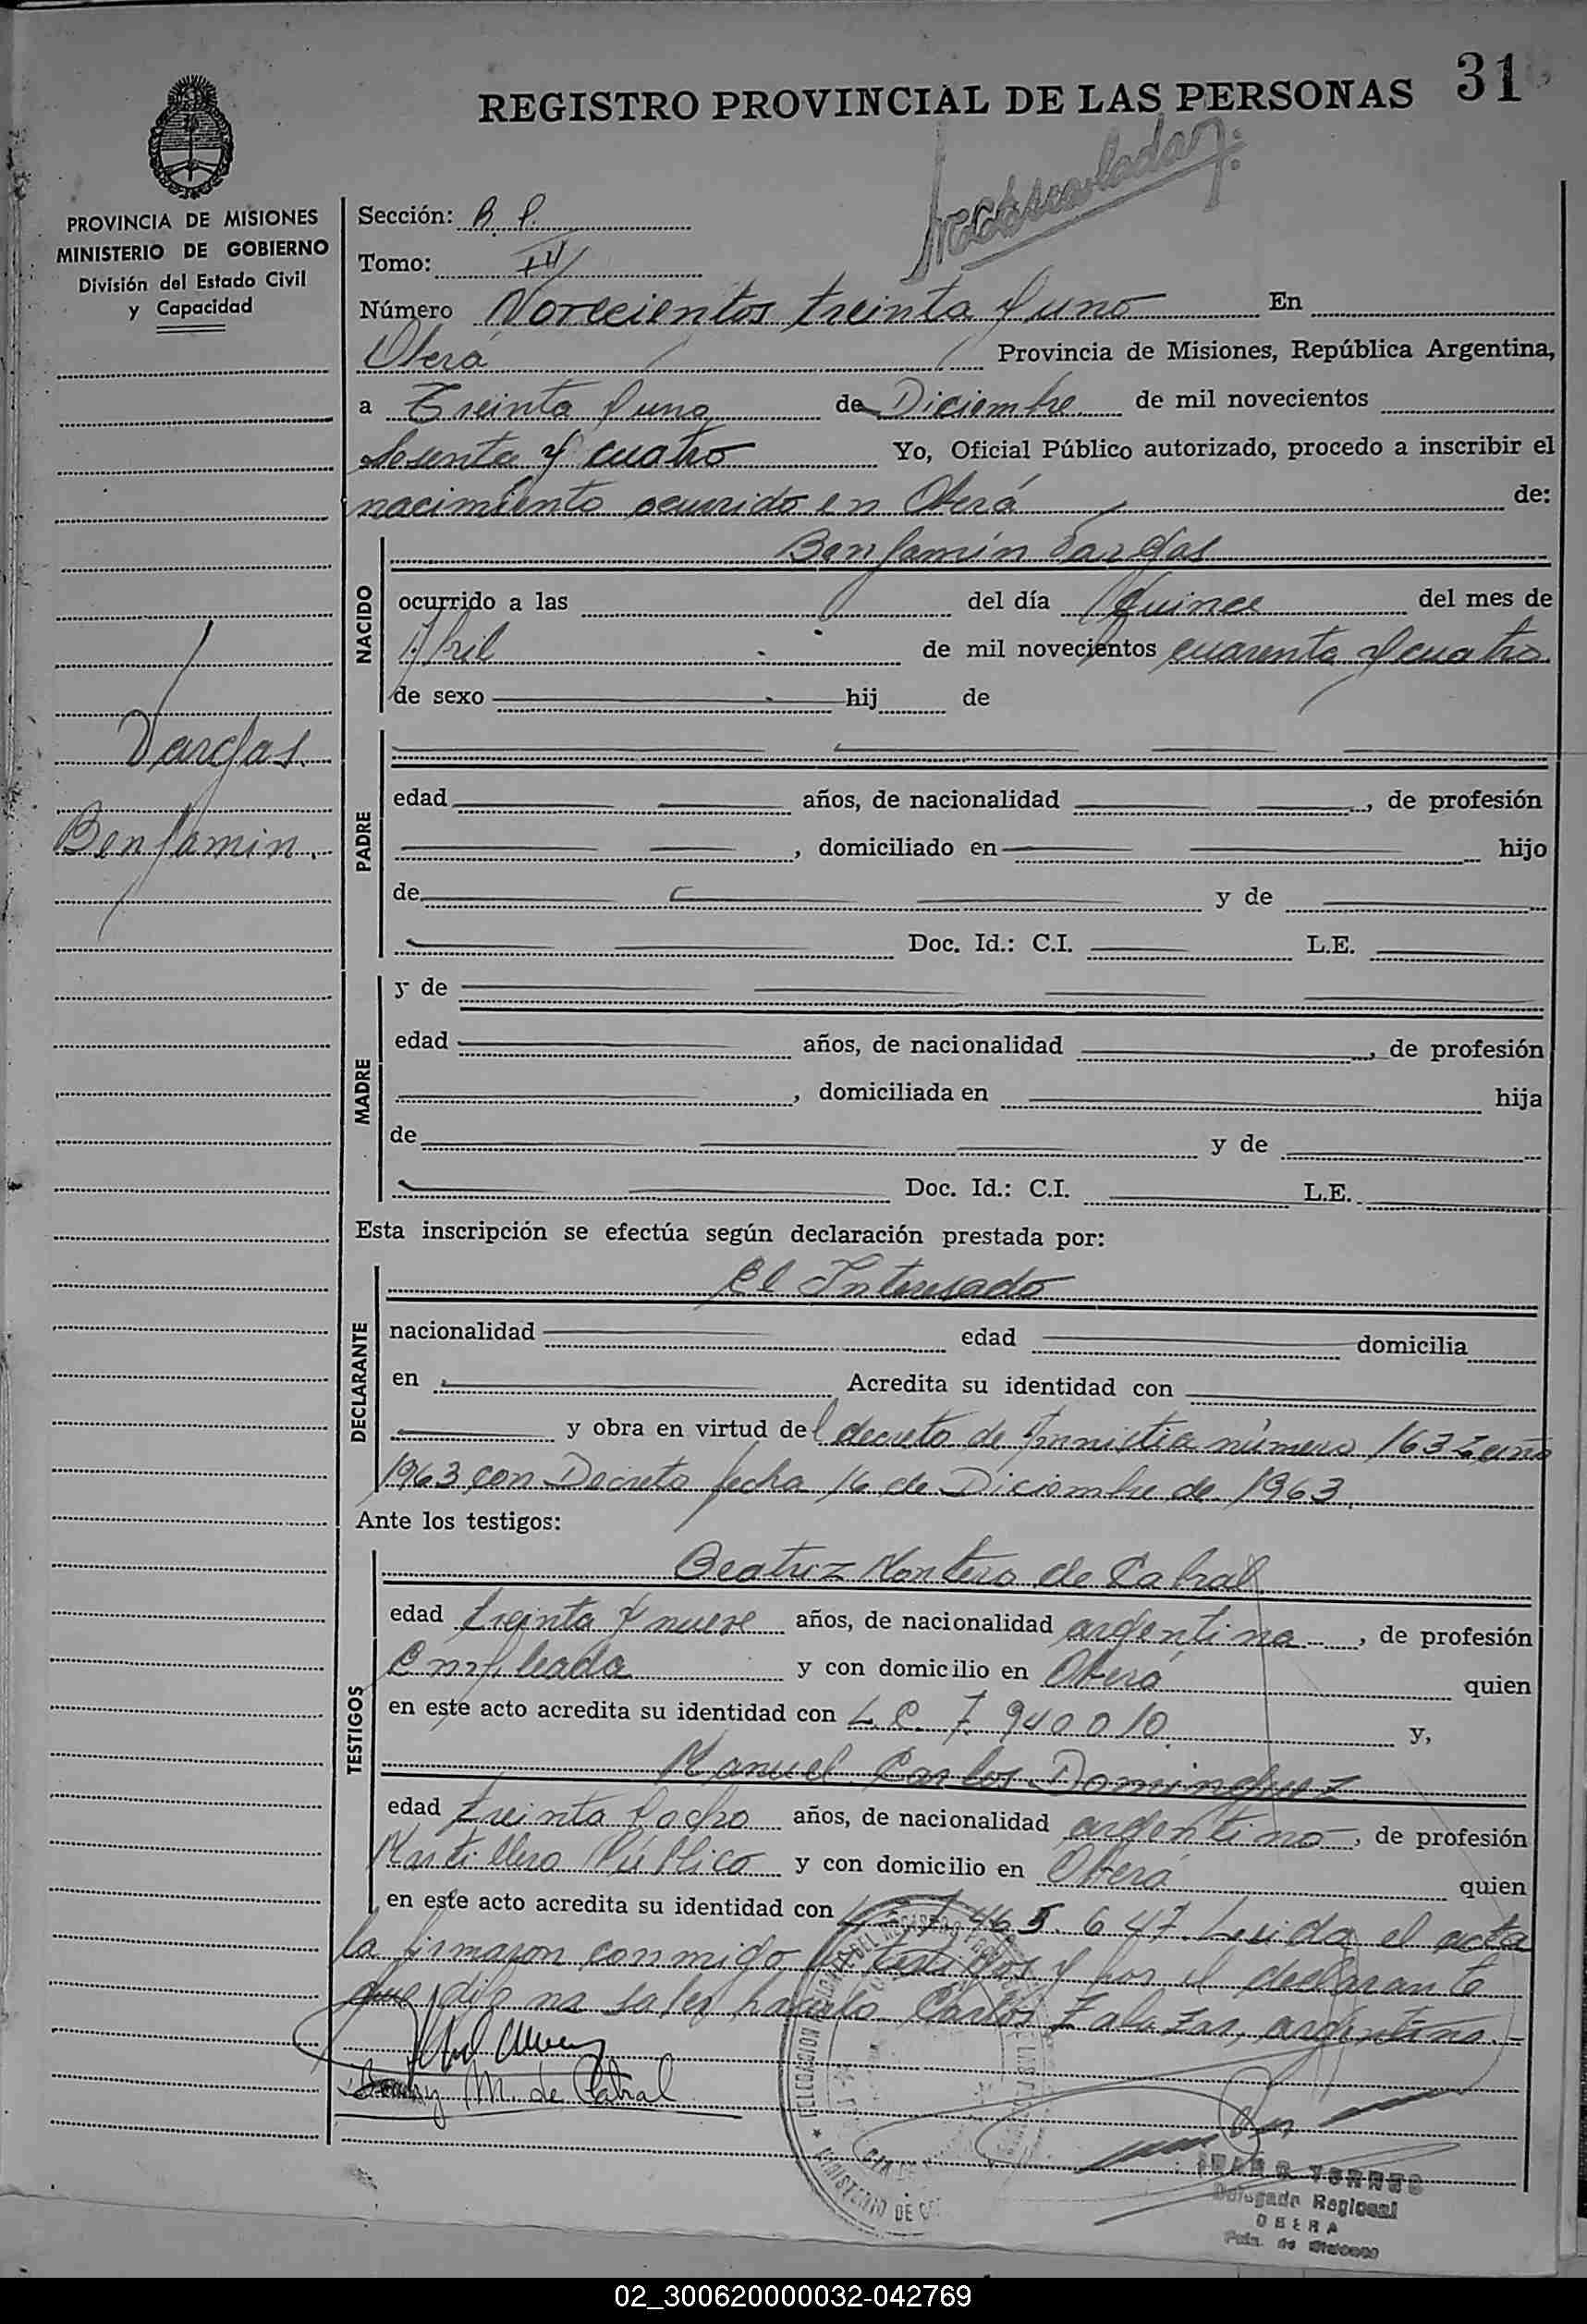 31
REGISTRO PROVINCIAL DE LAS PERSONAS
PROVINCIA DE MISIONES
MINISTERIO DE GOBIERNO
División del Estado Civil
y Capacidad
Vargas
Benjamin.
Sección: R. P.
Tomo: III
Número Novecientos treinta y uno En
Oberá Provincia de Misiones, República Argentina,
a Treinta y uno de Diciembre de mil novecientos
Sesenta y cuatro Yo, Oficial Público autorizado, procedo a inscribir el
nacimiento ocurrido en Oberá de:
NACIDO
Benjamín Vargas
ocurrido a las del día quince del mes de
Abril de mil novecientos cuarenta y cuatro
de sexo hij de
PADRE
edad años, de nacionalidad , de profesión
, domiciliado en hijo
de y de
Doc. Id.: C.I. L.E.
MADRE
y de
edad años, de nacionalidad , de profesión
, domiciliada en hija
de y de
Doc. Id.: C.I. L.E.
Esta inscripción se efectúa según declaración prestada por:
DECLARANTE
El Interesado
nacionalidad edad domicilia
en Acredita su identidad con
y obra en virtud del decreto de Amnistia número 1632 año
1963 con Decreto fecha 16 de Diciembre de 1963.
Ante los testigos:
TESTIGOS
Beatriz Montero de Cabral
edad treinta y nueve años, de nacionalidad argentina , de profesión
Empleada y con domicilio en Oberá quien
en este acto acredita su identidad con L.C. 7.940010 y,
Manuel Carlos Dominguez
edad treinta y ocho años, de nacionalidad argentino , de profesión
Martillero Público y con domicilio en Oberá quien
en este acto acredita su identidad con 465.647. Leida el acta
la firmaron conmigo los testigos y por el declarante
que dijo no saber hacerlo Carlos Zalazar, argentino.
M. de Cabral
TORRES
Delegado Regional
OBERA
Pcia. de Misiones
MINISTERIO DE
02_300620000032-042769